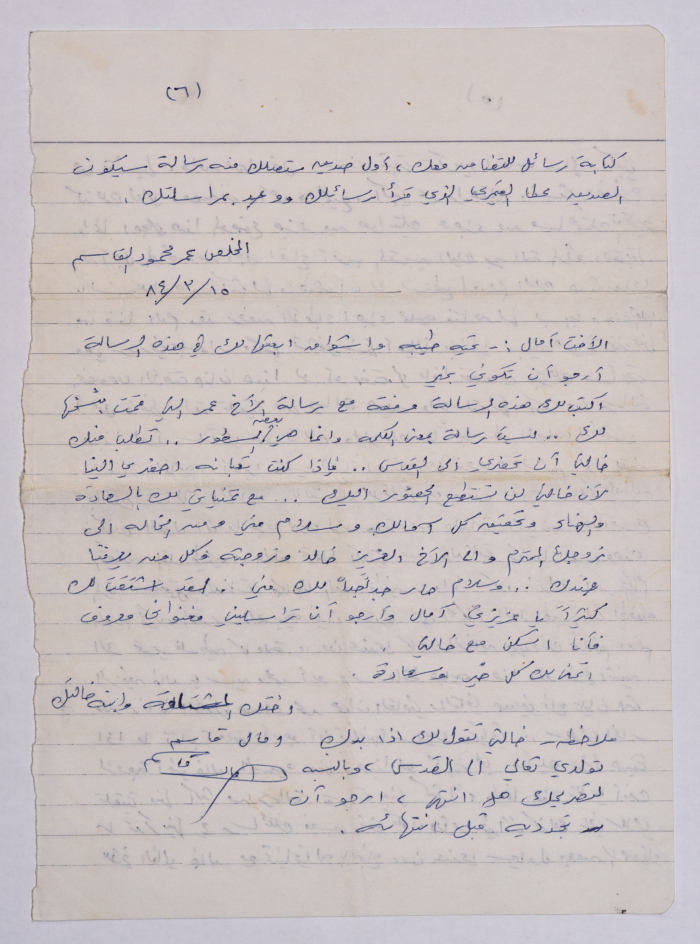 (٦)
كتابة رسائل للتضامن معك، أول صديق ستصلك منه رسالة سيكون
الصديق عطا القيمري الذي قرأ رسائلك ووعد بمراسلتك.
المخلص عمر محمود القاسم
٨٤/٣/١٥
الأخت آمال :- تحية طيبة وأشواق ابعثها لك في هذه الرسالة
أرجو أن تكوني بخير
اكتب لك هذه الرسالة مرفقة مع رسالة الأخ عمر التي قمت بنسخها
لك .. ليست رسالة بمعنى الكلمة وانما هي بعض السطور .. تطلب منك
خالتي أن تحضري الى القدس .. فإذا كنت تعبانه احضري الينا
لأن خالتي لن تستطيع الحضور اليك ... مع تمنياتي لك بالسعادة
والهناء وتحقيق كل آمالك وسلام مني ومن الخاله الى
زوجك المحترم والى الأخ العزيز خالد وزوجته وكل من يعرفنا
عندك .. وسلام حار جداً جداً لك مني . لقد اشتقت لك
كثيراً يا عزيزتي آمال وأرجو أن تراسليني فعنواني معروف
فأنا اسكن مع خالتي
اتمنى لك كل خير وسعادة .
اختك المشتاقة وابنة خالتك
ملاحظة - خالتي تقول لك اذا بدك
تولدي تعالي الى القدس، وبالنسبه
لتصريحك هل انتهى، ارجو أن
تجدديه قبل انتهائه .